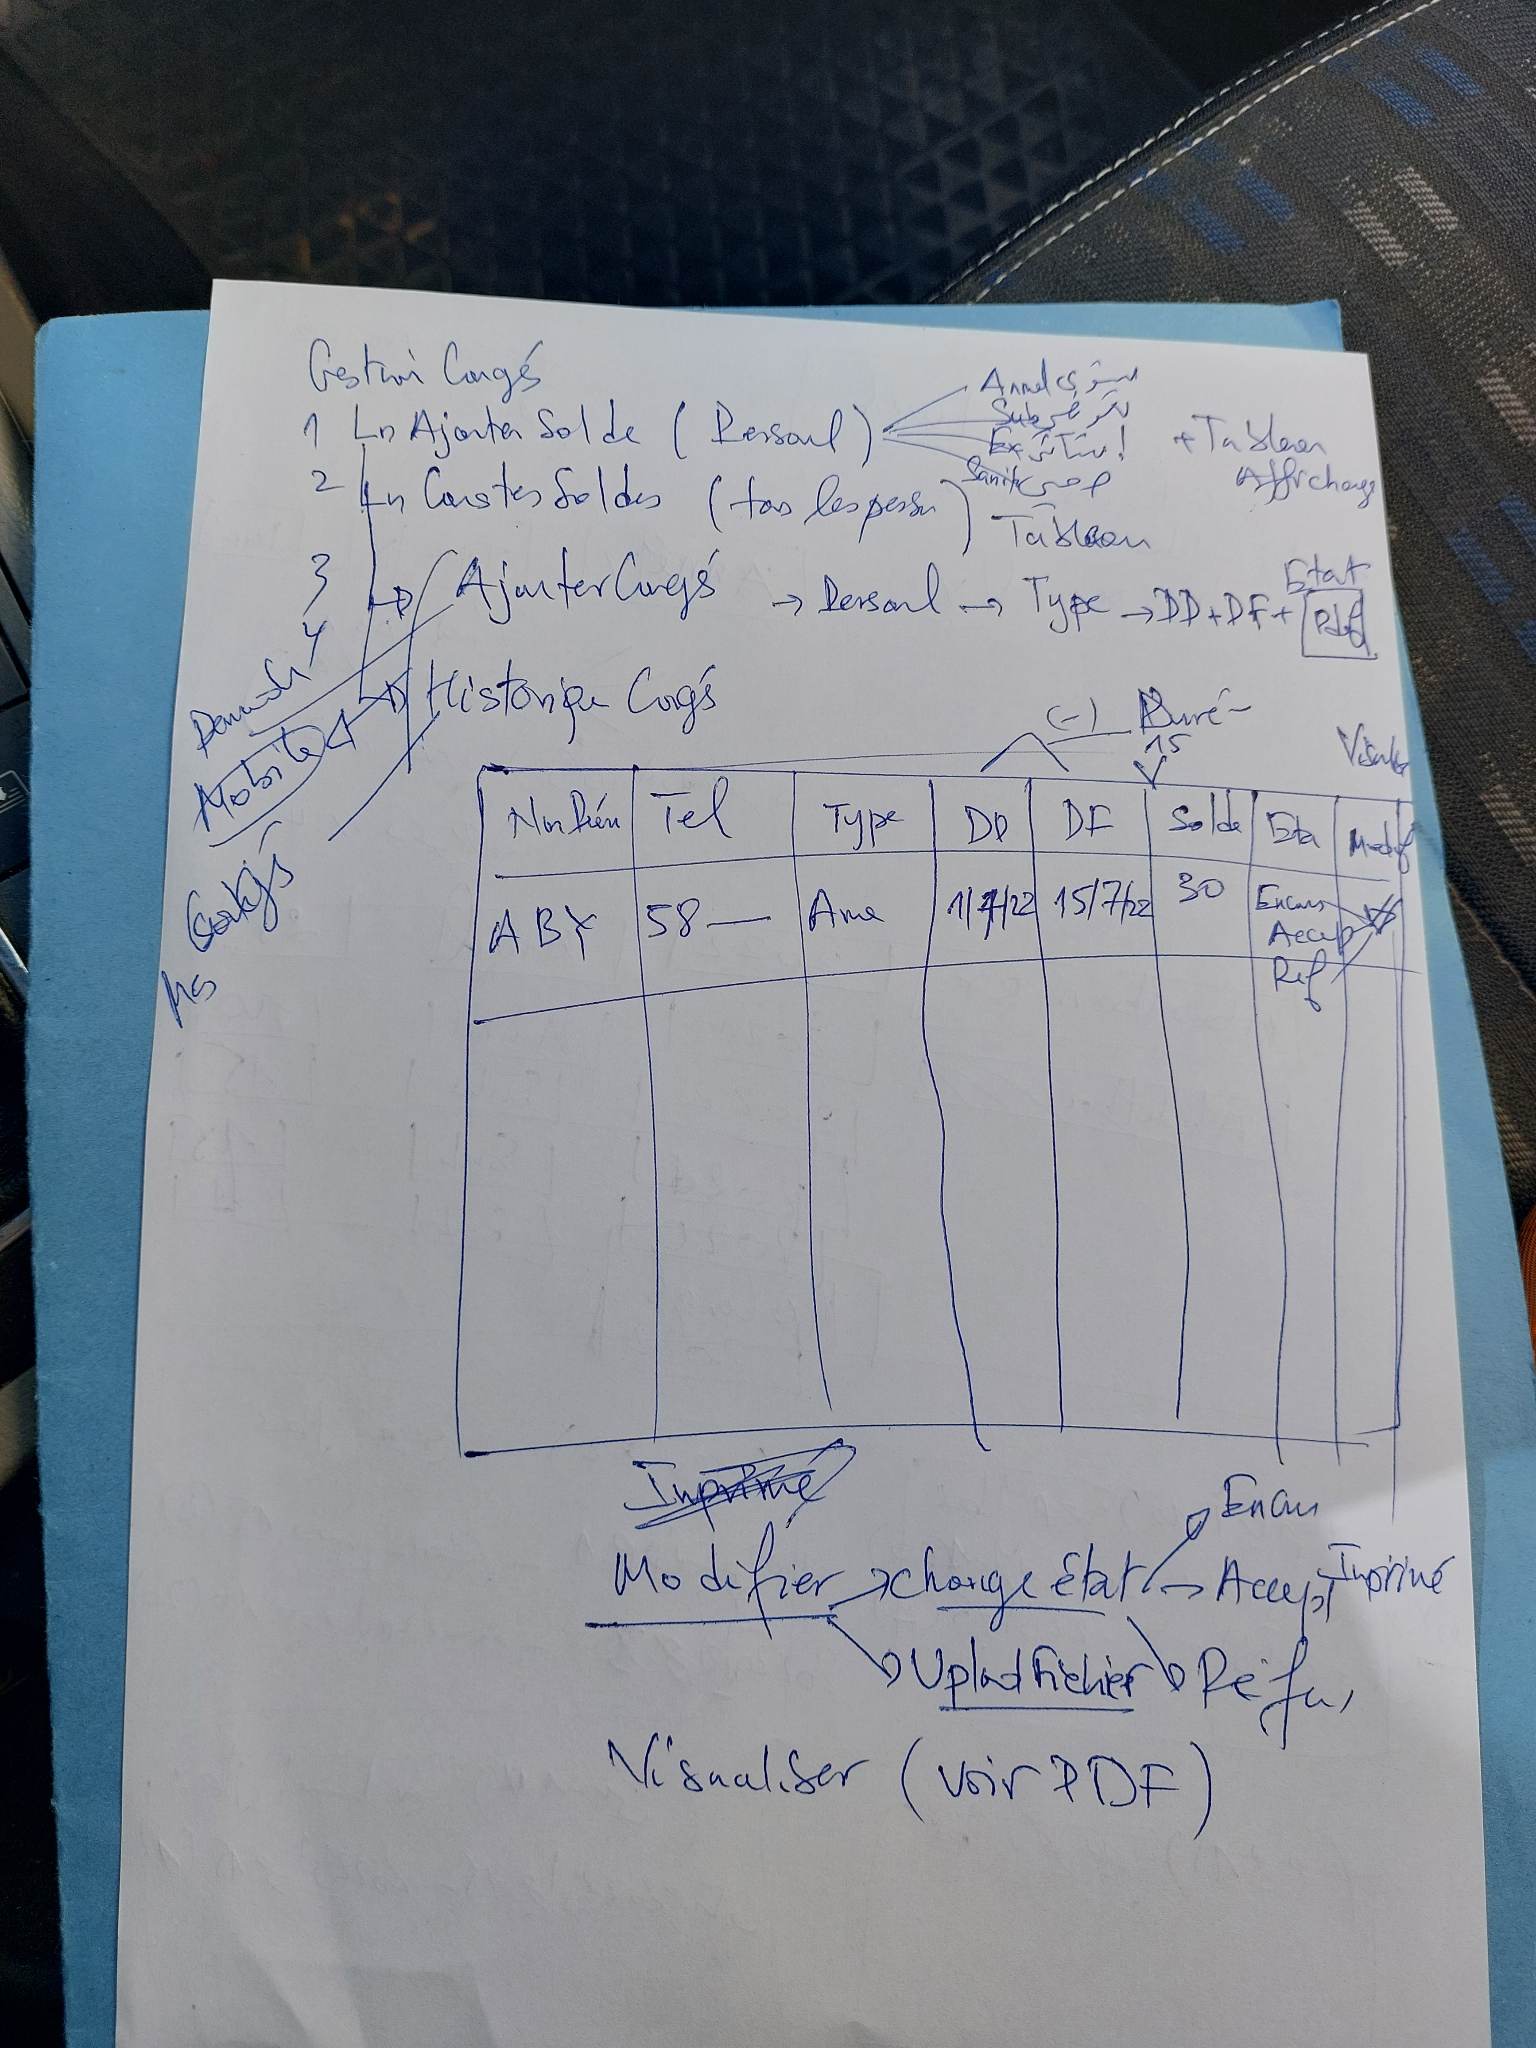 Gestion Congés
1 Ajouter Solde (Personl)
Annel سنوي
Sub
Ex إستثنائي
Sanit مرضي
+ Tableau
Affichage
2 Consulter Soldes (tous les person)
Tableau
3 Ajouter Congé → Personl → Type → DD + DF + Pdf
Etat
4 Historique Congés
Demande
Mobilité
Congés
Mes
(-) Durée
15
Visualiser
Nom Prén Tel Type DD DF Solde Eta Modif
ABY 58 Ann 1/7/22 15/7/22 30 Encours
Accep
Ref
Imprimé
Modifier → change état → Accept Imprimé
Encou
Upload Fichier Réfu
Visualiser (voir PDF)